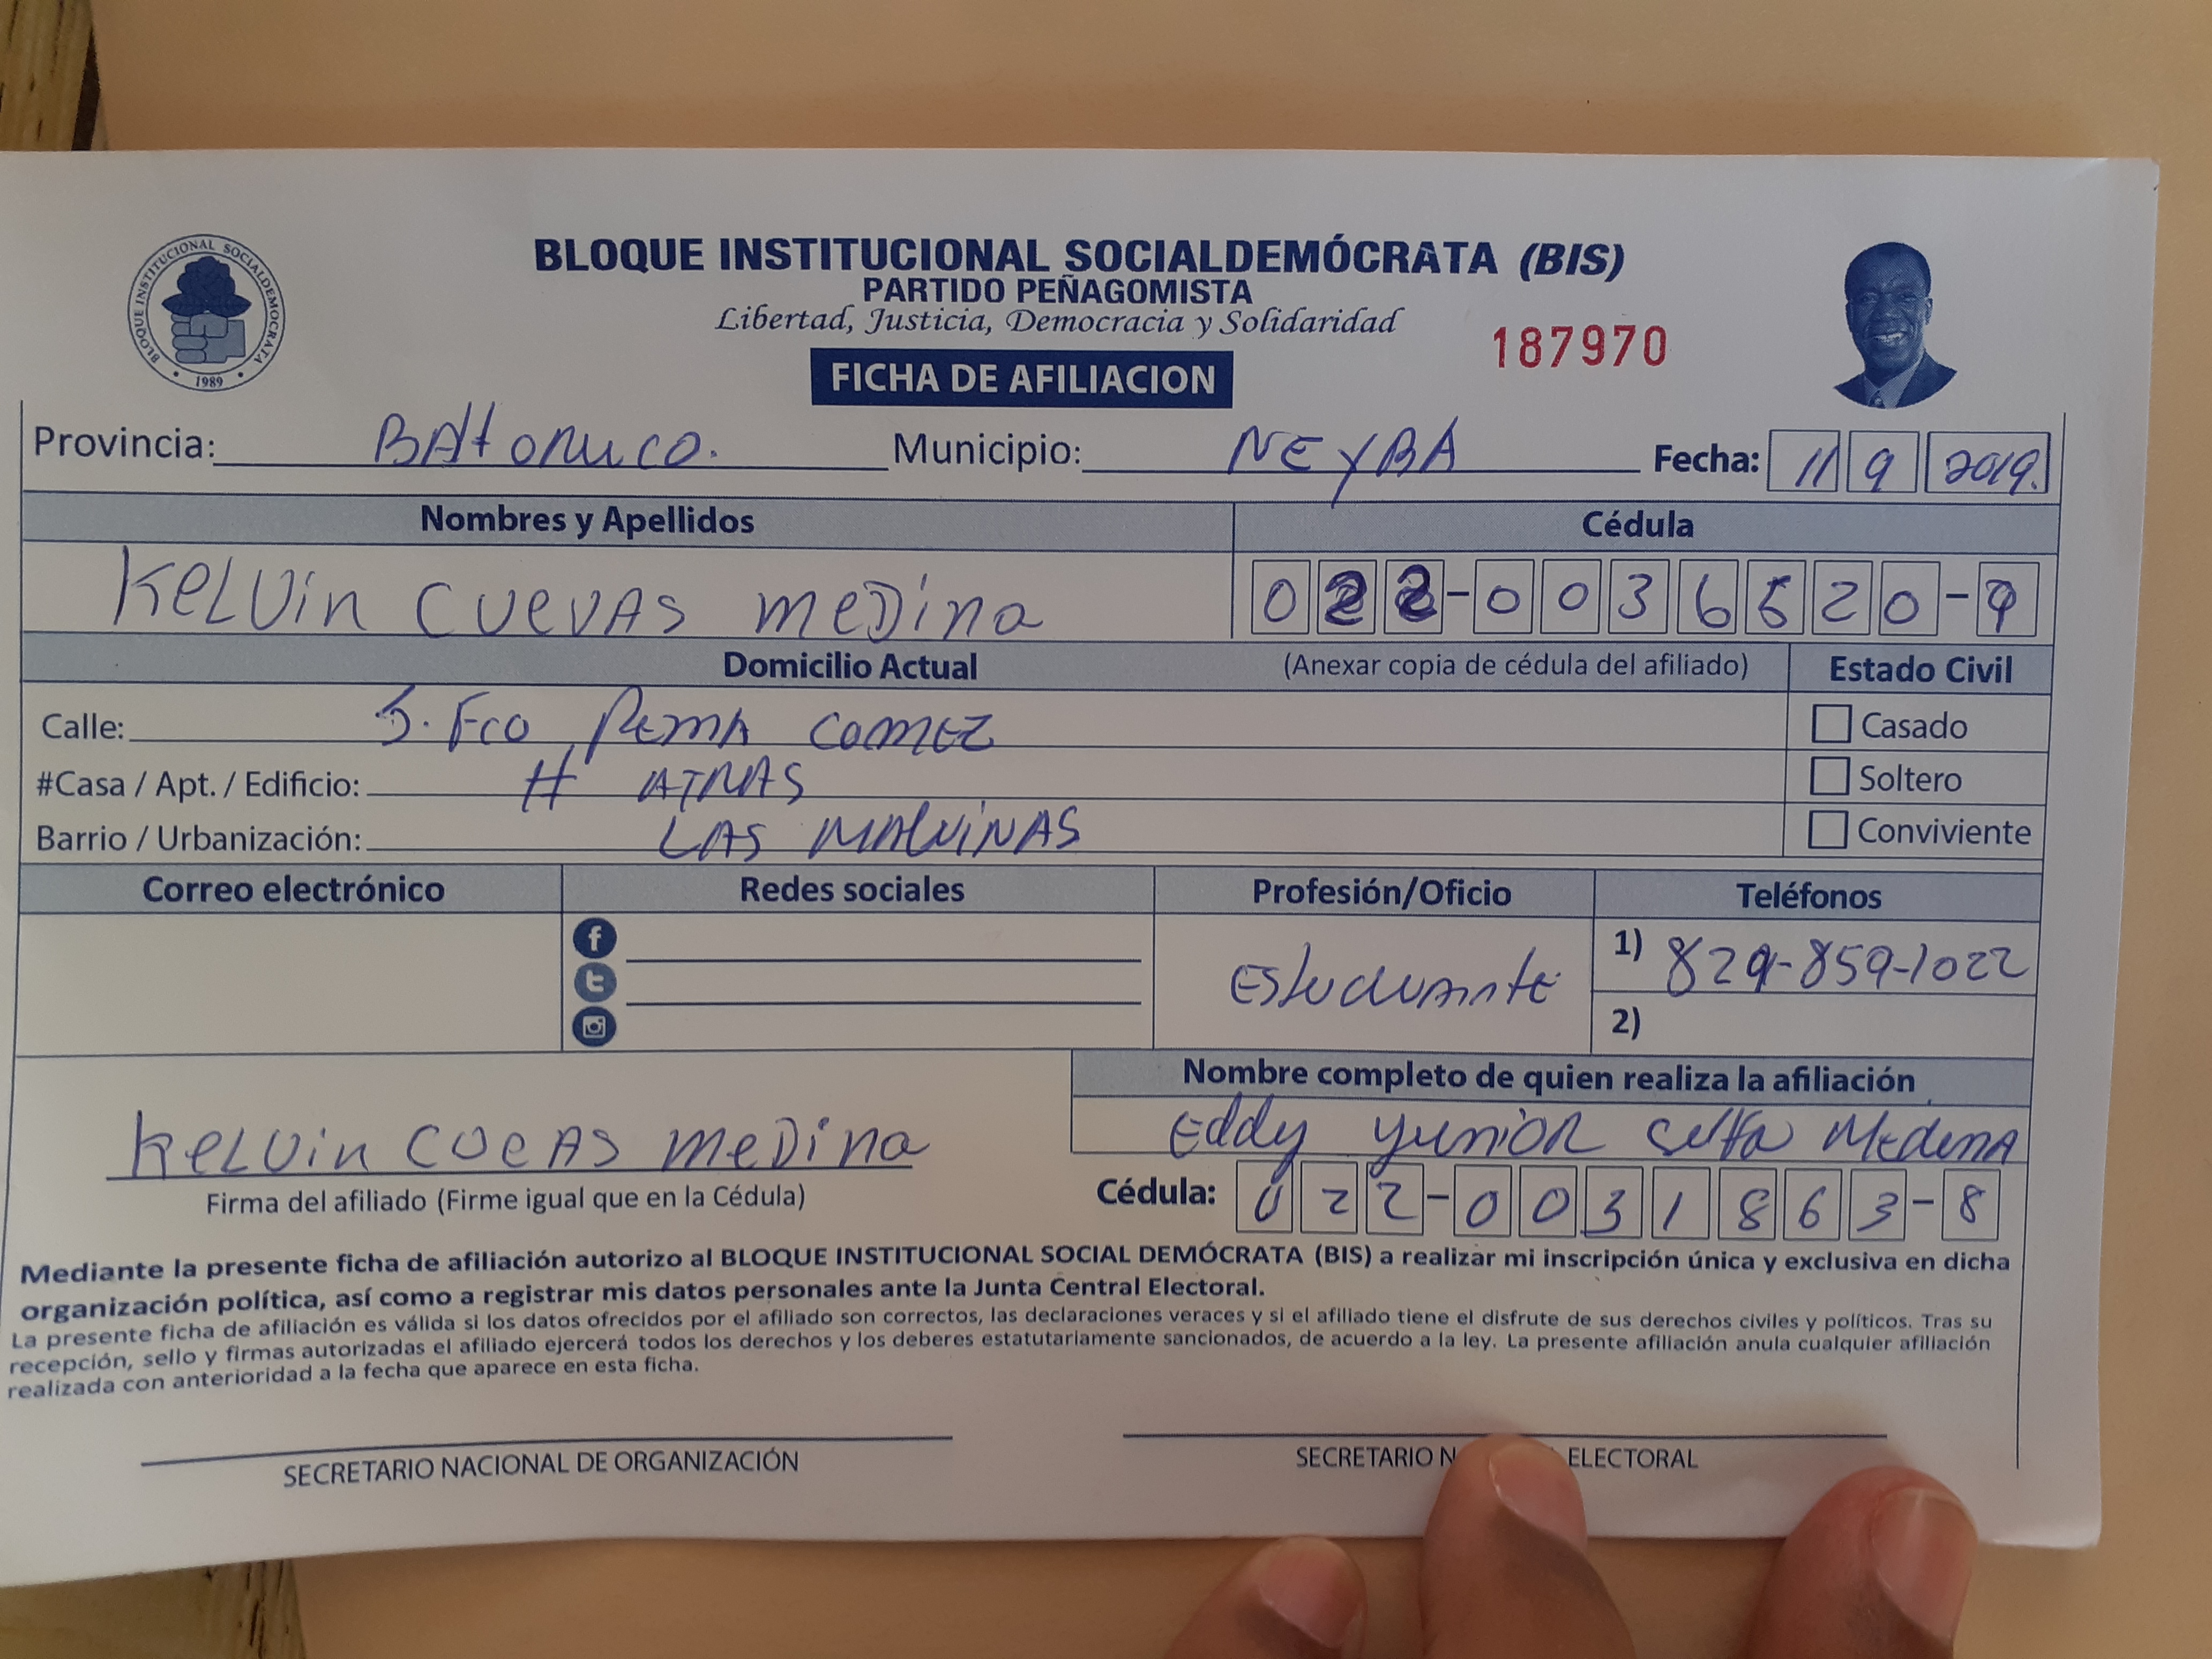 BLOQUE INSTITUCIONAL SOCIALDEMÓCRATA (BIS)
PARTIDO PEÑAGOMISTA
Libertad, Justicia, Democracia y Solidaridad
BLOQUE INSTITUCIONAL SOCIALDEMOCRATA
1989
187970
FICHA DE AFILIACION
Provincia: BAHORUCO. Municipio: NEYBA Fecha: 11 9 2019.
Nombres y Apellidos Cédula
KELVin CUEVAS MEDina 022-0036520-9
Domicilio Actual (Anexar copia de cédula del afiliado) Estado Civil
Calle: S. Fco PEÑA GOMEZ Casado
#Casa / Apt. / Edificio: # ATRAS Soltero
Barrio / Urbanización: LAS MALVINAS Conviviente
Correo electrónico Redes sociales Profesión/Oficio Teléfonos
Estudiante 1) 829-859-1022
2)
Nombre completo de quien realiza la afiliación
KELVin CUEAS MEDina Eddy yunior Medina
Firma del afiliado (Firme igual que en la Cédula) Cédula: 022-0031863-8
Mediante la presente ficha de afiliación autorizo al BLOQUE INSTITUCIONAL SOCIAL DEMÓCRATA (BIS) a realizar mi inscripción única y exclusiva en dicha
organización política, así como a registrar mis datos personales ante la Junta Central Electoral.
La presente ficha de afiliación es válida si los datos ofrecidos por el afiliado son correctos, las declaraciones veraces y si el afiliado tiene el disfrute de sus derechos civiles y políticos. Tras su
recepción, sello y firmas autorizadas el afiliado ejercerá todos los derechos y los deberes estatutariamente sancionados, de acuerdo a la ley. La presente afiliación anula cualquier afiliación
realizada con anterioridad a la fecha que aparece en esta ficha.
SECRETARIO NACIONAL DE ORGANIZACIÓN SECRETARIO ELECTORAL